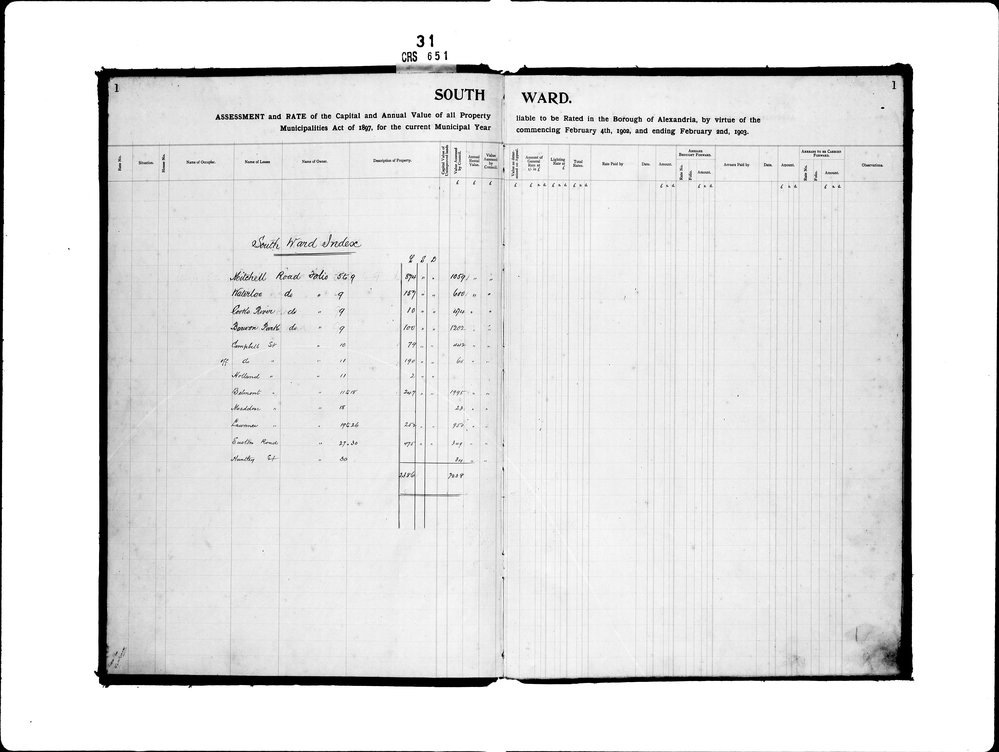 31
CRS 651
1
1
SOUTH WARD.
ASSESSMENT and RATE of the Capital and Annual Value of all Property liable to be Rated in the Borough of Alexandria, by virtue of the
Municipalities Act of 1897, for the current Municipal Year commencing February 4th, 1902, and ending February 2nd, 1903.
Rate No. Situation. House No. Name of Occupier. Name of Lessee Name of Owner. Description of Property. Capital Value of Unimproved Value Assessed by Council. Annual Rental Value. Value Assessed by Council. Amount of General Rate at Lighting Rate at Total Rates. Rate Paid by Date. Amount. ARREARS BROUGHT FORWARD. Rate No. Folio. Amount. Arrears Paid by Date. Amount. ARREARS TO BE CARRIED FORWARD. Rate No. Folio. Amount. Observations.
£ £ £ £ £ s d £ s d £ s d £ s d £ s d £ s d £ s d
South Ward Index
£ S D
Mitchell Road Folio 5 to 9 574 " " 1059 " "
Waterloo do " 9 157 " " 600 " "
Cooks River do " 9 10 " " 474 " "
Bowson Park do " 9 100 " " 1202 " "
Campbell St " 10 79 " " 442 " "
off do " " 11 190 " " 60 " "
Holland " " 11 2 " "
Belmont " " 11 to 18 247 " " 1995 " "
" " 18 23 " "
Lawrence " " 19 to 26 252 " " 952 " "
Euston Road " 27-30 475 " " " "
Huntley St " 30 " "
2386